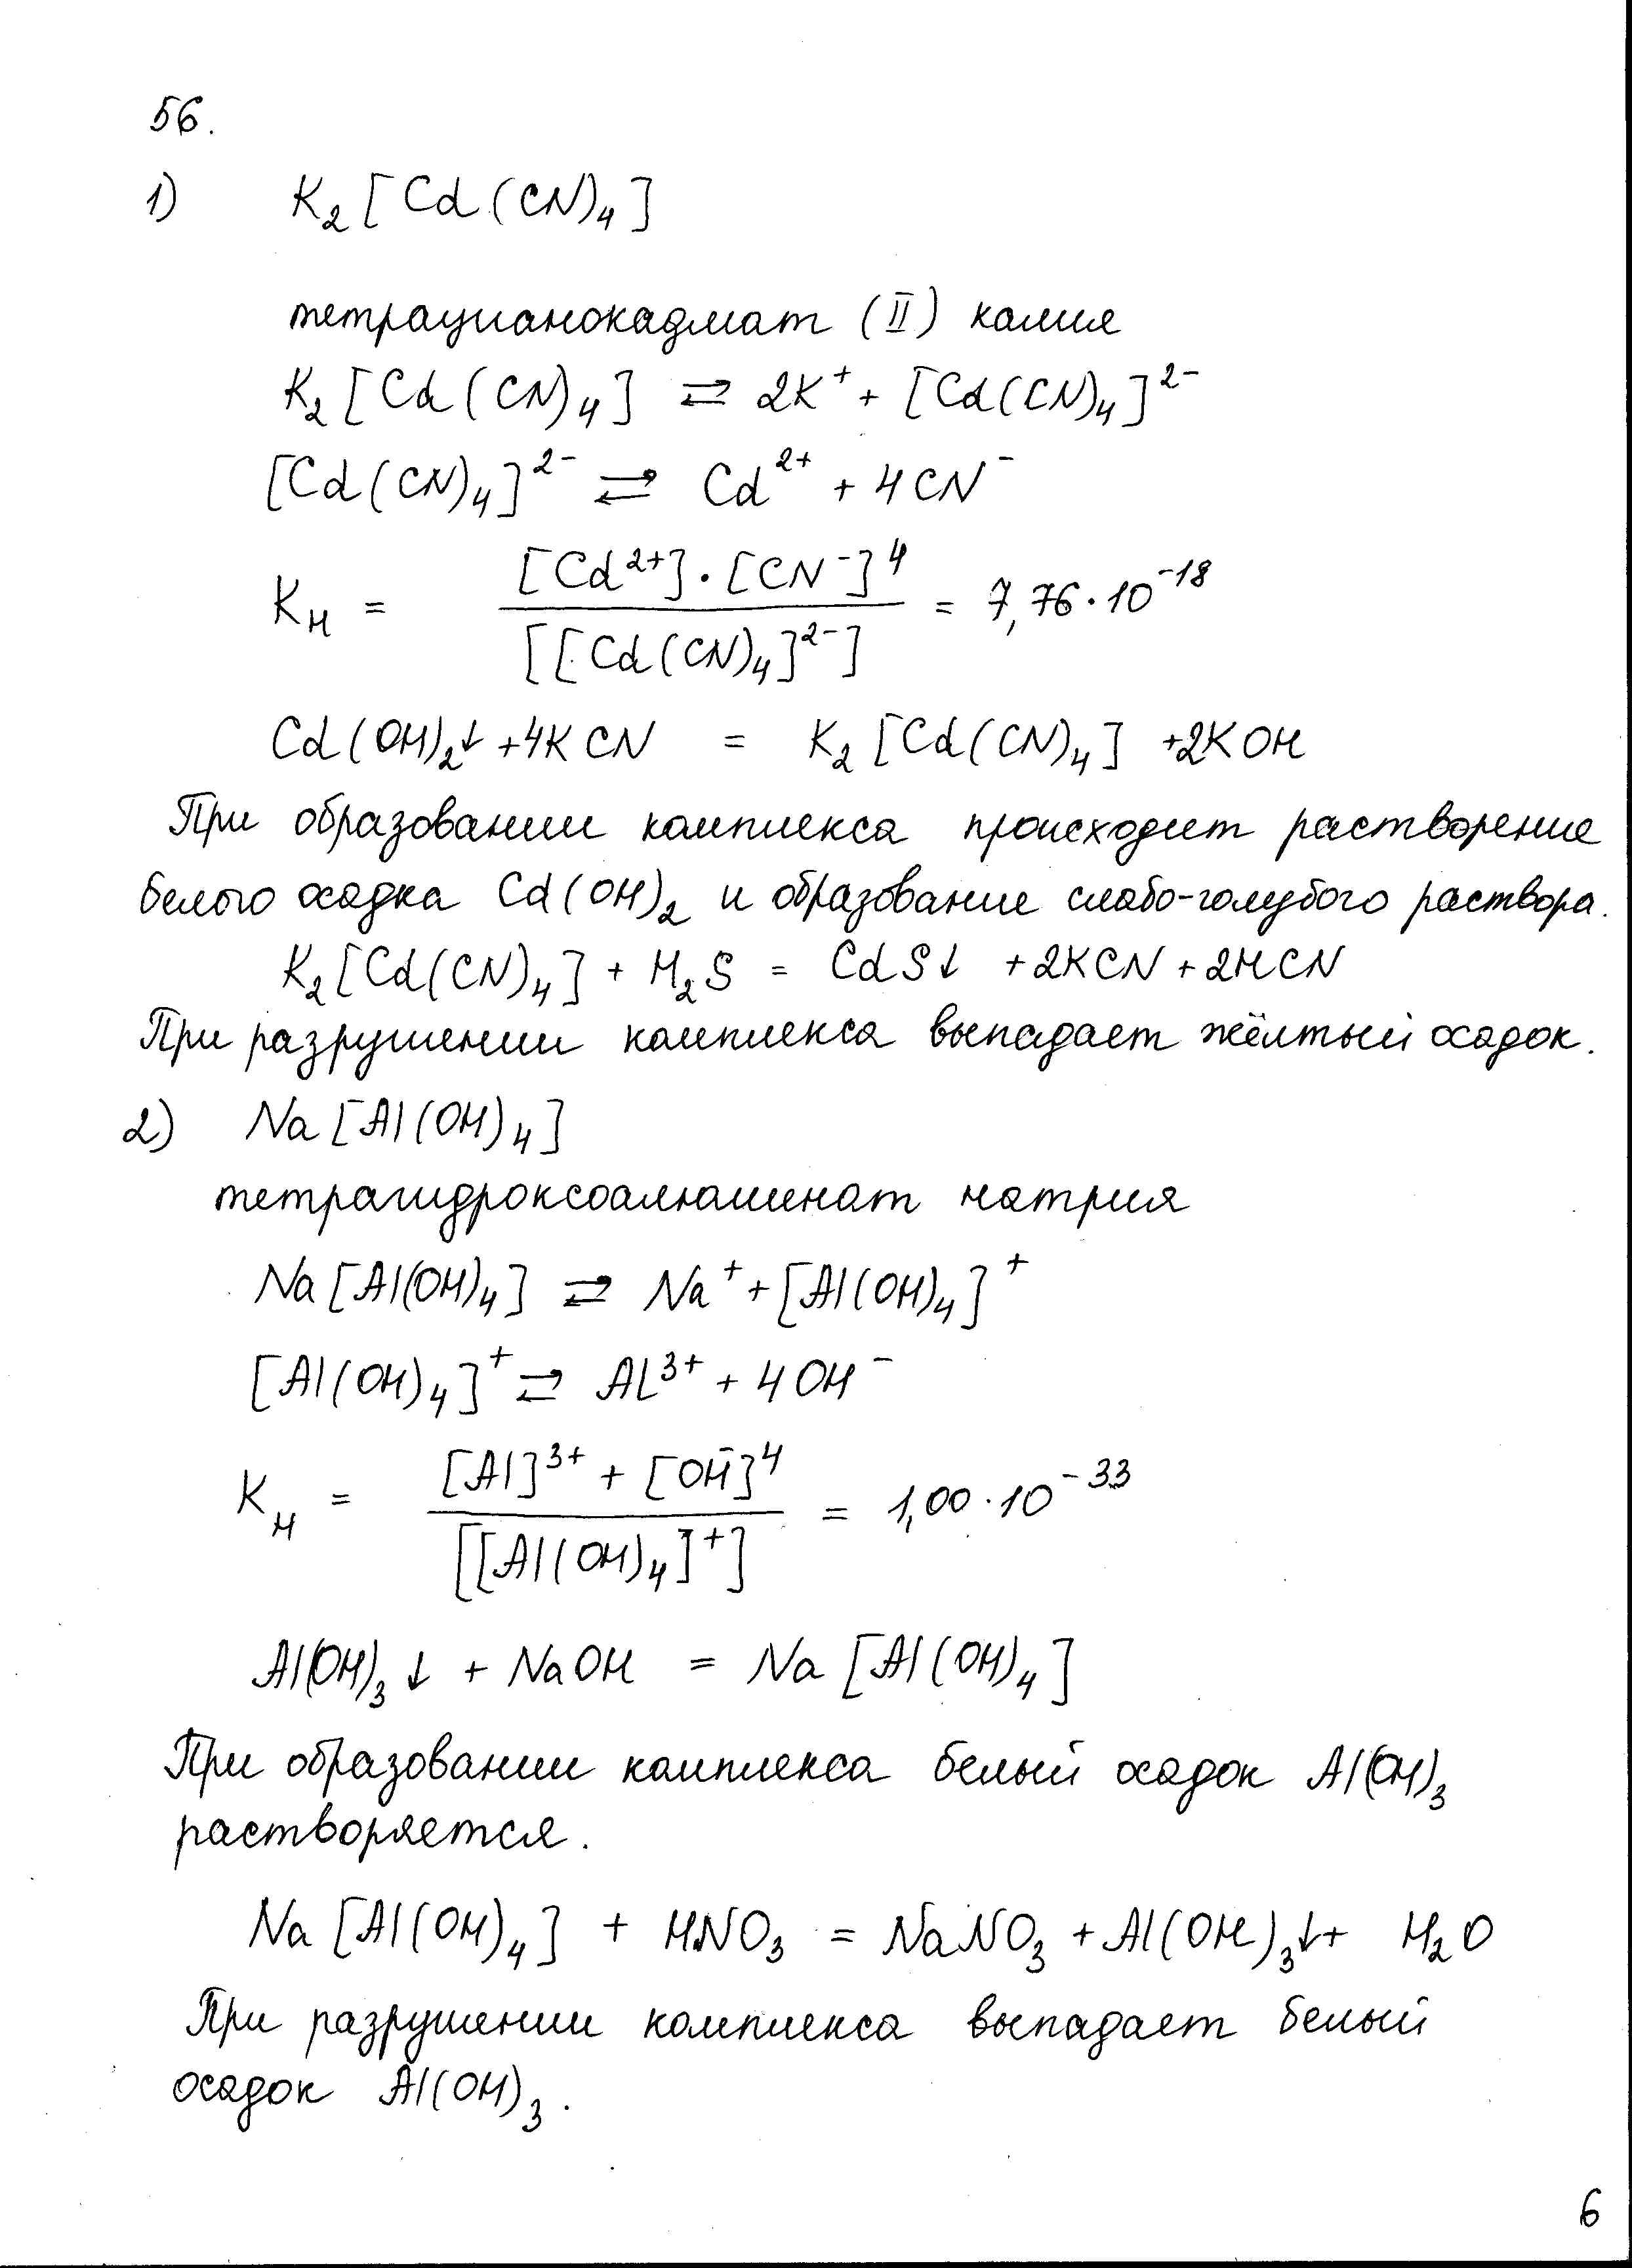 56.
1) K₂[Cd(CN)₄]
тетрацианокадмат (II) калия
K₂[Cd(CN)₄] ⇄ 2K⁺ + [Cd(CN)₄]²⁻
[Cd(CN)₄]²⁻ ⇄ Cd²⁺ + 4CN⁻
Kн = [Cd²⁺]·[CN⁻]⁴ / [[Cd(CN)₄]²⁻] = 7,76·10⁻¹⁸
Cd(OH)₂↓ + 4KCN = K₂[Cd(CN)₄] + 2KOH
При образовании комплекса происходит растворение
белого осадка Cd(OH)₂ и образование слабо-голубого раствора.
K₂[Cd(CN)₄] + H₂S = CdS↓ + 2KCN + 2HCN
При разрушении комплекса выпадает жёлтый осадок.
2) Na[Al(OH)₄]
тетрагидроксоалюминат натрия
Na[Al(OH)₄] ⇄ Na⁺ + [Al(OH)₄]⁺
[Al(OH)₄]⁺ ⇄ Al³⁺ + 4OH⁻
Kн = [Al]³⁺ + [OH⁻]⁴ / [[Al(OH)₄]⁺] = 1,00·10⁻³³
Al(OH)₃↓ + NaOH = Na[Al(OH)₄]
При образовании комплекса белый осадок Al(OH)₃
растворяется.
Na[Al(OH)₄] + HNO₃ = NaNO₃ + Al(OH)₃↓ + H₂O
При разрушении комплекса выпадает белый
осадок Al(OH)₃.
6